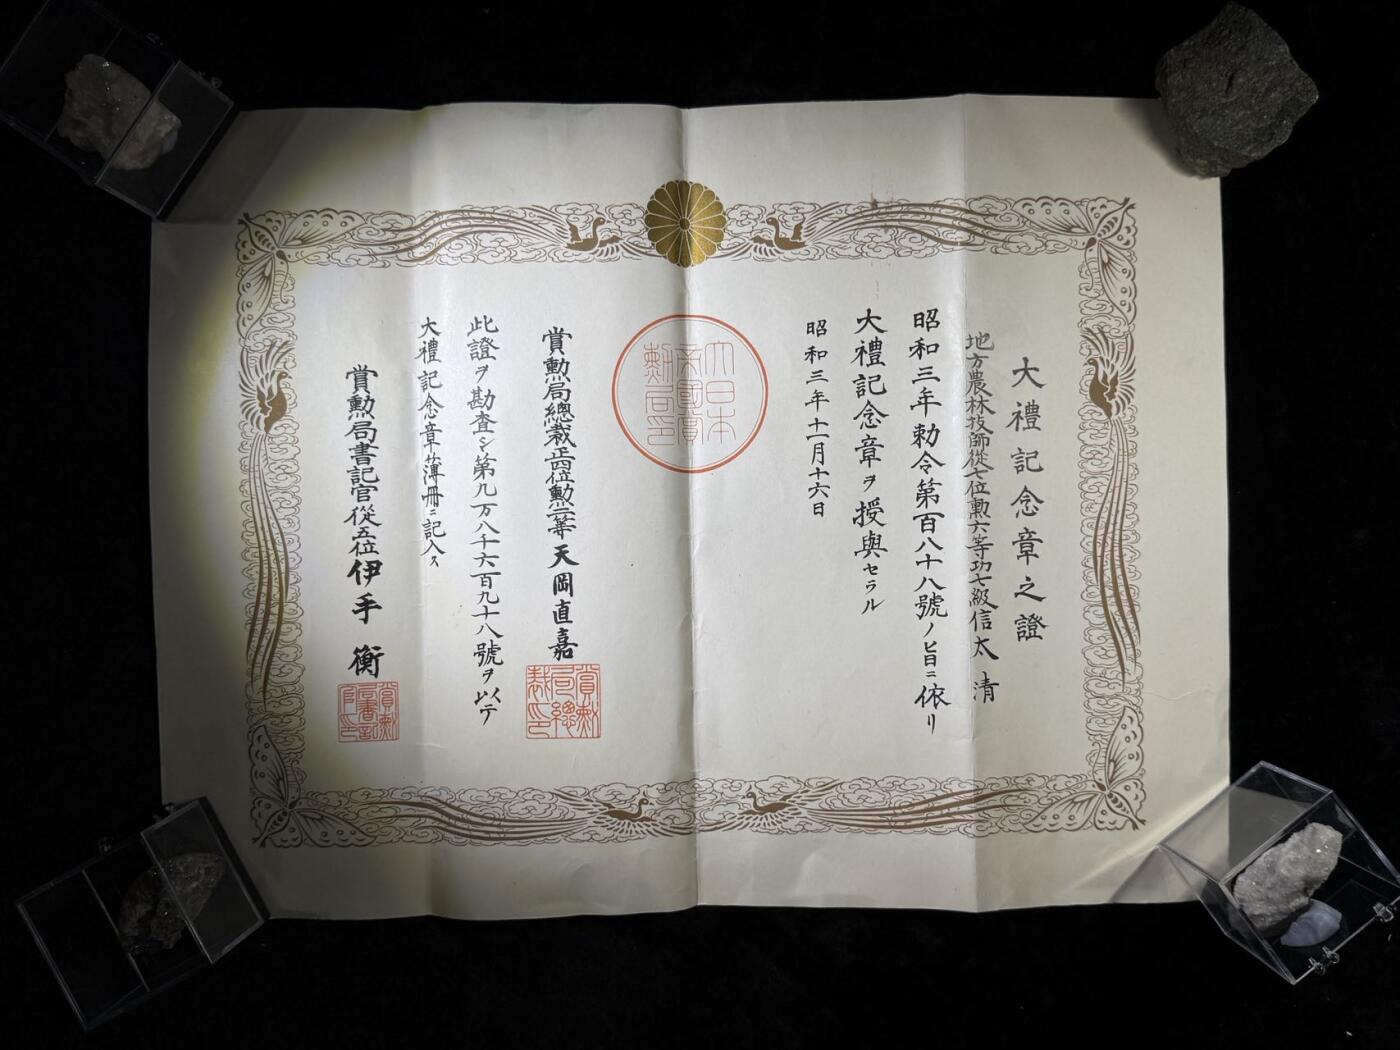 大禮記念章之證
地方農林技師從七位勲六等功七級信太 清
昭和三年勅令第百八十八號ノ旨ニ依リ
大禮記念章ヲ授與セラル
昭和三年十一月十六日
大日本
帝國賞
勲局印
賞勲局總裁正四位勲二等天岡直嘉
賞勲
局總
裁印
此證ヲ勘査シ第九万八千六百九十八號ヲ以テ
大禮記念章簿冊ニ記入ス
賞勲局書記官從五位伊手 衡
賞勲
局書記
官印